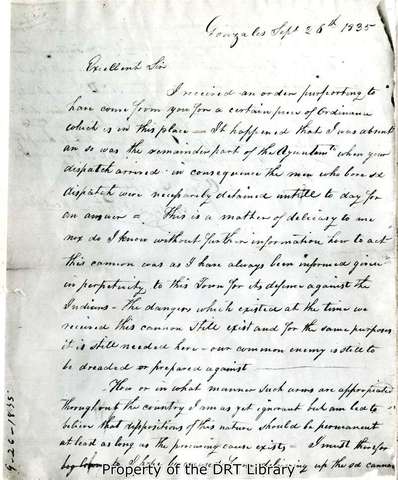 Gonzales Sept 26th 1835
Excellent Sir
I received an order purporting to
have come from you for a certain piece of Ordinance
which is in this place — It happened that I was absent
an so was the remainder part of the Ayuntamto when your
dispatch arrived in consequence the men who bore sd
dispatch were necesarily detained untill to day for
an answer = This is a matter of deliciasy to me
nor do I know without further information how to act
this cannon was as I have always been informed given
in perpetuity to this Town for its defense against the
Indians - The dangers which existed at the time we
received this cannon still exist and for the same purposes
it is still needed here - our common enemy is still to
be dreaded or prepared against
How or in what manner such arms are appropriated
throughout the country I am as yet ignorant but am led to
believe that dispositions of this nature should be permanent
at least as long as the procuring cause exists - I must therefor
to be excused from delivering up the sd cannon
9-26-1835
Property of the DRT Library